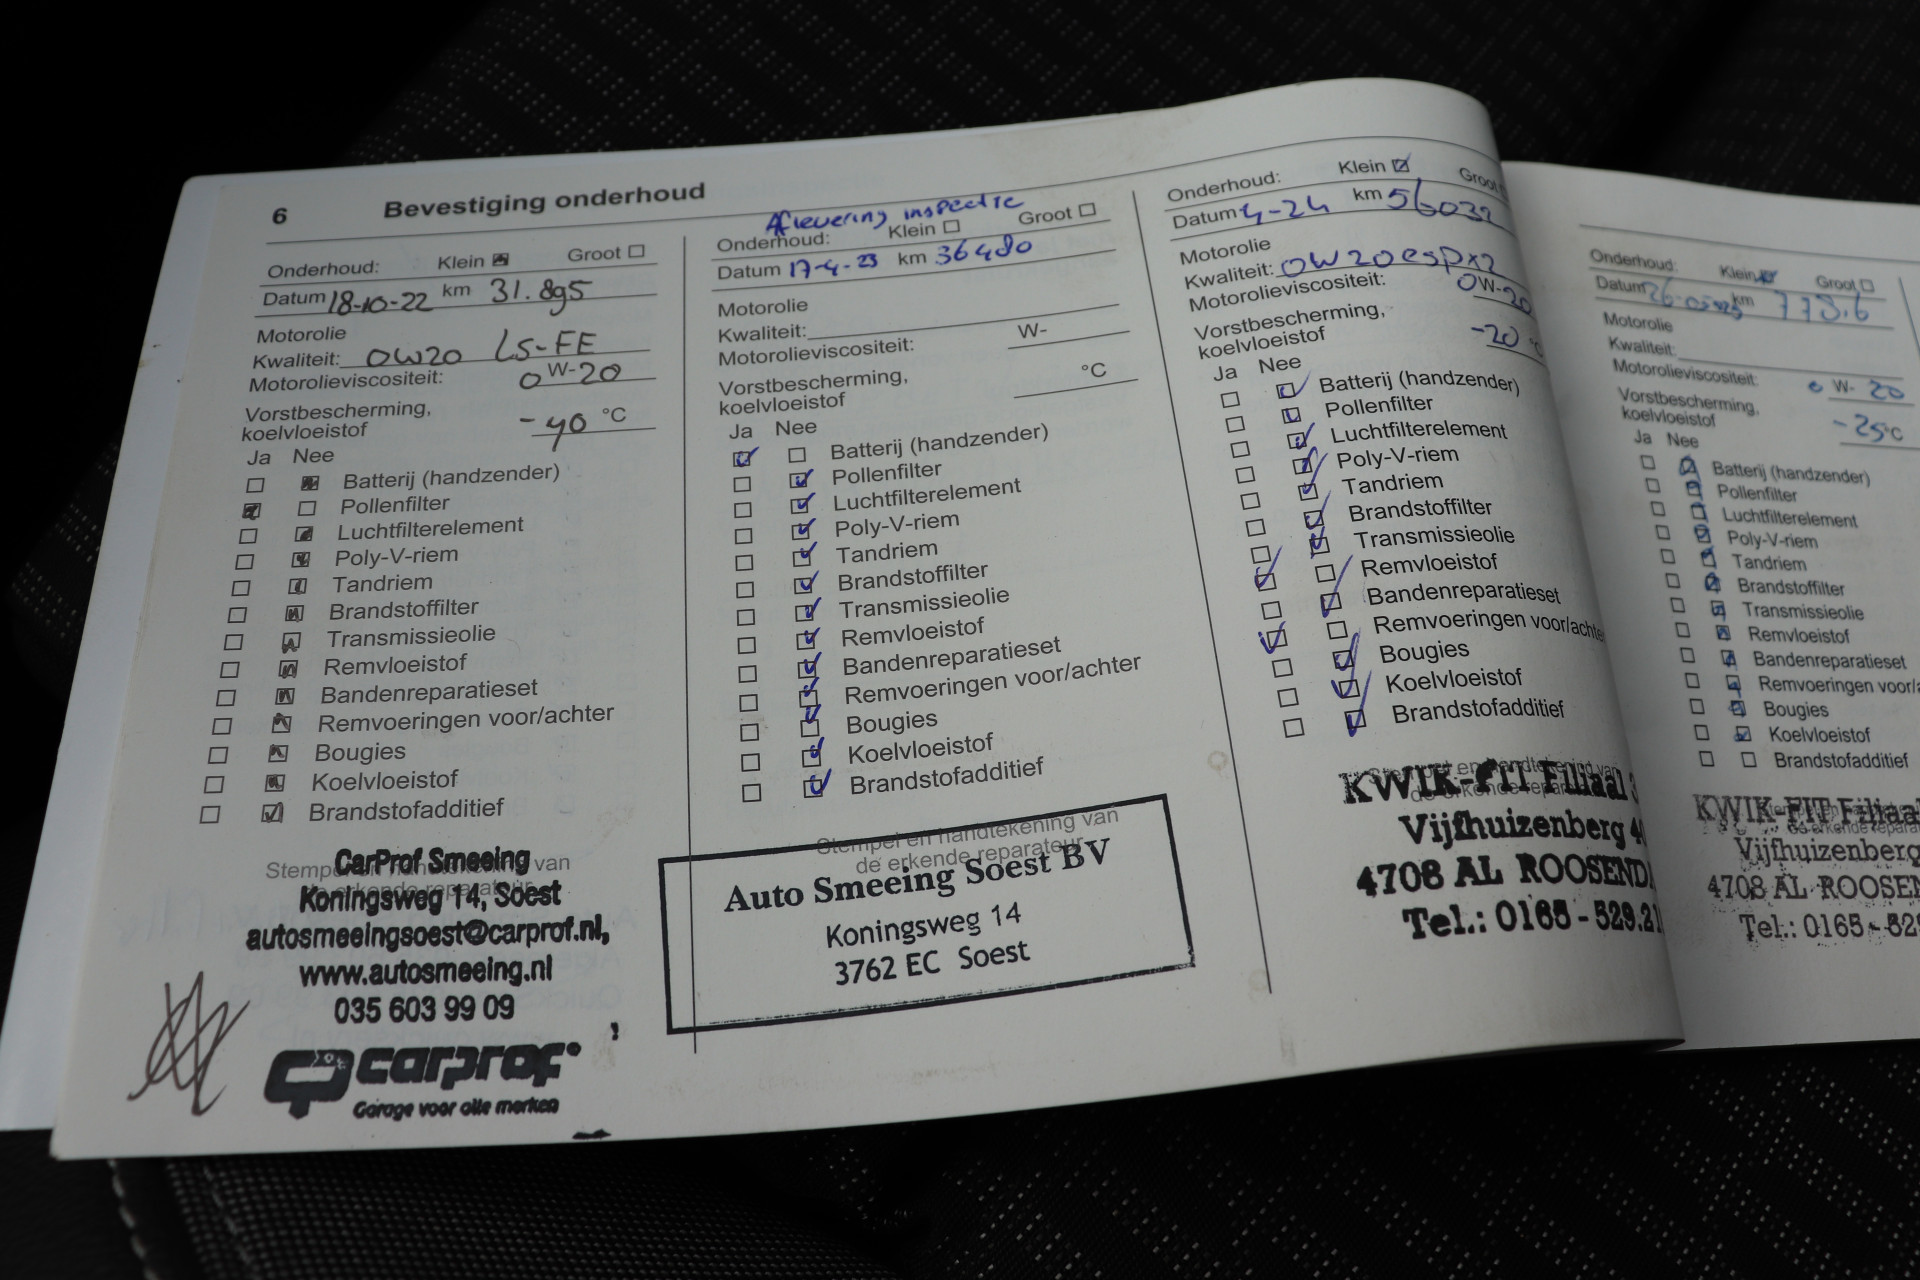 6 Bevestiging onderhoud
Onderhoud: Klein Groot
Datum 18-10-22 km 31.895
Motorolie
Kwaliteit: 0W20 LS-FE
Motorolieviscositeit: 0 W-20
Vorstbescherming,
koelvloeistof -40 °C
Ja Nee
Batterij (handzender)
Pollenfilter
Luchtfilterelement
Poly-V-riem
Tandriem
Brandstoffilter
Transmissieolie
Remvloeistof
Bandenreparatieset
Remvoeringen voor/achter
Bougies
Koelvloeistof
Brandstofadditief
Stempel en handtekening van
de erkende reparateur
CarProf Smeeing
Koningsweg 14, Soest
autosmeeingsoest@carprof.nl,
www.autosmeeing.nl
035 603 99 09
carprof
Garage voor alle merken
Aflevering inspectie
Onderhoud: Klein Groot
Datum 17-4-23 km 36480
Motorolie
Kwaliteit:
Motorolieviscositeit: W-
Vorstbescherming,
koelvloeistof °C
Ja Nee
Batterij (handzender)
Pollenfilter
Luchtfilterelement
Poly-V-riem
Tandriem
Brandstoffilter
Transmissieolie
Remvloeistof
Bandenreparatieset
Remvoeringen voor/achter
Bougies
Koelvloeistof
Brandstofadditief
Stempel en handtekening van
de erkende reparateur
Auto Smeeing Soest BV
Koningsweg 14
3762 EC Soest
Onderhoud: Klein Groot
Datum 4-24 km 56032
Motorolie
Kwaliteit: 0W20 espx2
Motorolieviscositeit: 0W-20
Vorstbescherming,
koelvloeistof -20 °C
Ja Nee
Batterij (handzender)
Pollenfilter
Luchtfilterelement
Poly-V-riem
Tandriem
Brandstoffilter
Transmissieolie
Remvloeistof
Bandenreparatieset
Remvoeringen voor/achte
Bougies
Koelvloeistof
Brandstofadditief
Stempel en handtekening van
de erkende repar
KWIK-FIT Filiaal 3
Vijfhuizenberg 4
4708 AL ROOSEND
Tel.: 0165 - 529.21
Onderhoud: Klein Groot
Datum km
Motorolie
Kwaliteit:
Motorolieviscositeit: 0 W- 20
Vorstbescherming,
koelvloeistof -25°C
Ja Nee
Batterij (handzender)
Pollenfilter
Luchtfilterelement
Poly-V-riem
Tandriem
Brandstoffilter
Transmissieolie
Remvloeistof
Bandenreparatieset
Remvoeringen voor/
Bougies
Koelvloeistof
Brandstofadditief
de erkende repara
KWIK-FIT Filiaal
Vijfhuizenberg
4708 AL ROOSEN
Tel.: 0165 - 52